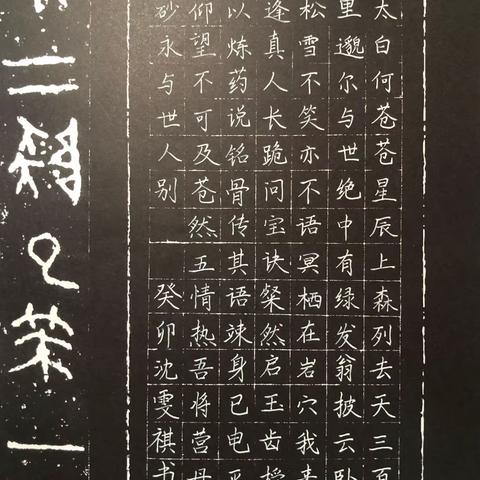 太白何苍苍星辰上森列去天三百
里邈尔与世绝中有绿发翁披云卧
松雪不笑亦不语冥栖在岩穴我来
逢真人长跪问宝诀粲然启玉齿授
以炼药说铭骨传其语竦身已电灭
仰望不可及苍然五情热吾将营丹
砂永与世人别
癸卯沈雯祺书